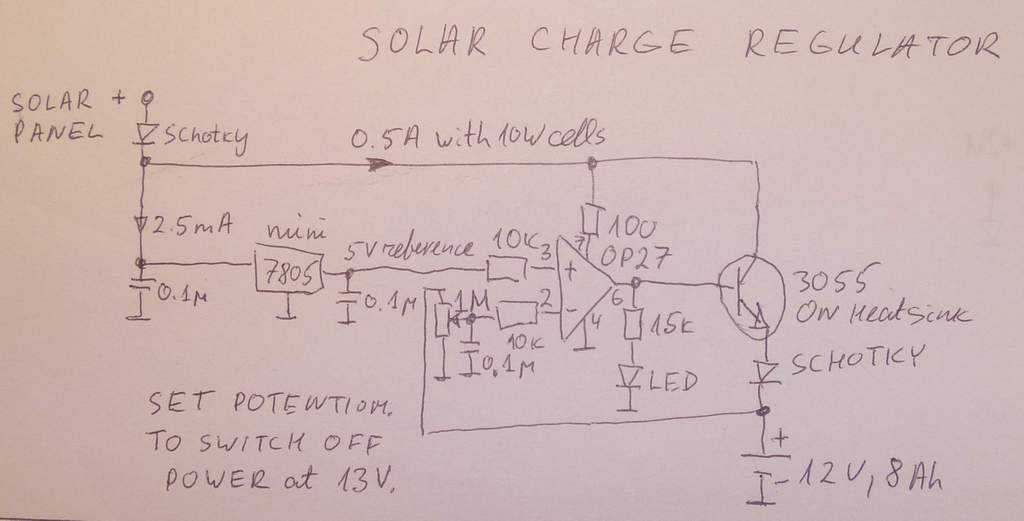 SOLAR CHARGE REGULATOR
SOLAR +
PANEL
SChotky
0.5A with 10W cells
2.5mA
mini
7805
5V reberence
10K
3
+
7
100
OP27
0.1M
0.1M
1M
10K
2
-
6
4
0.1M
15k
LED
3055
ON HeatSink
SCHOTKY
SET POTENTIOM.
TO SWITCH OFF
POWER at 13V.
+
- 12V, 8Ah